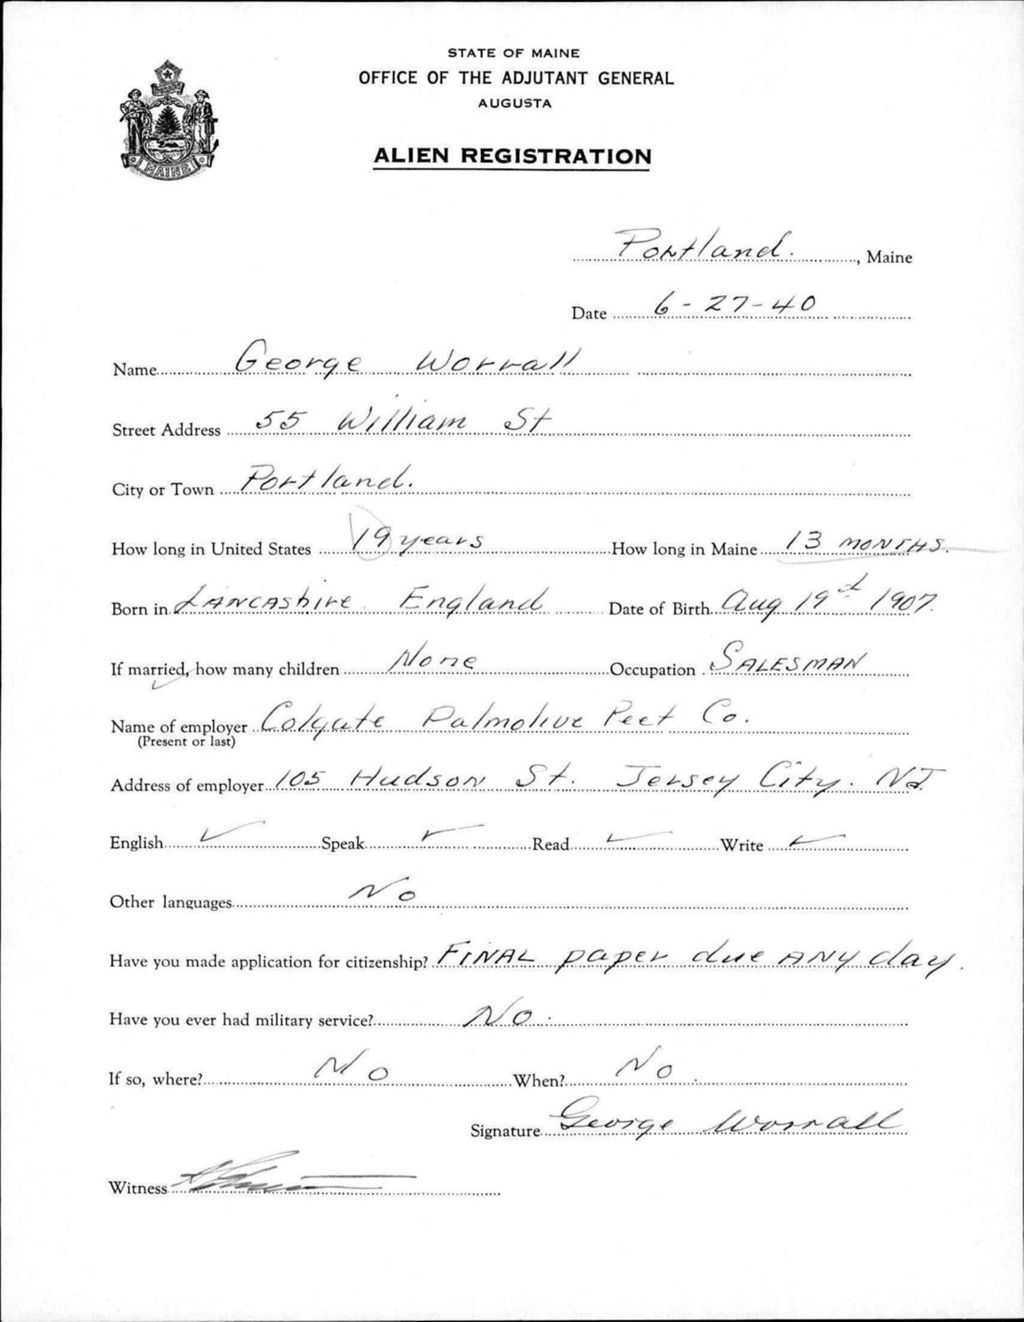 STATE OF MAINE
OFFICE OF THE ADJUTANT GENERAL
AUGUSTA
ALIEN REGISTRATION
MAINE
Portland. , Maine
Date 6-27-40
Name George Worrall
Street Address 55 William St
City or Town Portland.
How long in United States 19 years How long in Maine 13 MONTHS.
Born in LANCAShire England Date of Birth Aug 19th 1907.
If married, how many children None Occupation SALESMAN
Name of employer Colgate Palmolive Peet Co.
(Present or last)
Address of employer 105 Hudson St. Jersey City. NJ
English ✓ Speak ✓ Read ✓ Write ✓
Other languages No
Have you made application for citizenship? FINAL paper due ANY day.
Have you ever had military service? No.
If so, where? No When? No.
Signature George Worrall
Witness